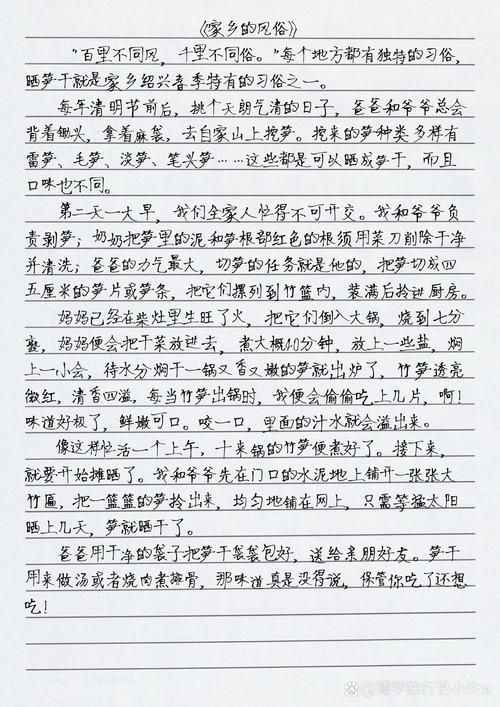 《家乡的风俗》
"百里不同风，千里不同俗。"每个地方都有独特的习俗，
晒笋干就是家乡绍兴春季特有的习俗之一。
每年清明节前后，挑个天朗气清的日子，爸爸和爷爷总会
背着锄头，拿着麻袋，去自家山上挖笋。挖来的笋种类多样有
雷笋、毛笋、淡笋、笔头笋……这些都是可以晒成笋干，而且
口味也不同。
第二天一大早，我们全家人忙得不可开交。我和爷爷负
责剥笋；奶奶把笋里的泥和笋根部红色的根须用菜刀削除干净
并清洗；爸爸的力气最大，切笋的任务就是他的，把笋切成四
五厘米的笋片或笋条，把它们摞列到竹篮内，装满后拎进厨房。
妈妈已经在柴灶里生旺了火，把它们倒入大锅，烧到七分
熟，妈妈便会把干菜放进去，煮大概40分钟，放上一些盐，焖
上一小会，待水分焖干一锅又香又嫩的笋就出炉了，竹笋透亮
微红，清香四溢，每当竹笋出锅时，我便会偷偷吃上几片，啊！
味道好极了，鲜嫩可口。咬一口，里面的汁水就会溢出来。
像这样忙活一个上午，十来锅的竹笋便煮好了。接下来，
就要开始摊晒了。我和爷爷先在门口的水泥地上铺开一张张大
竹匾，把一篮篮的笋拎出来，均匀地铺在网上，只需等猛太阳
晒上几天，笋就晒干了。
爸爸用干净的袋子把笋干袋袋包好，送给亲朋好友。笋干
用来做汤或者烧肉煮排骨，那味道真是没得说，保管你吃了还想
吃！